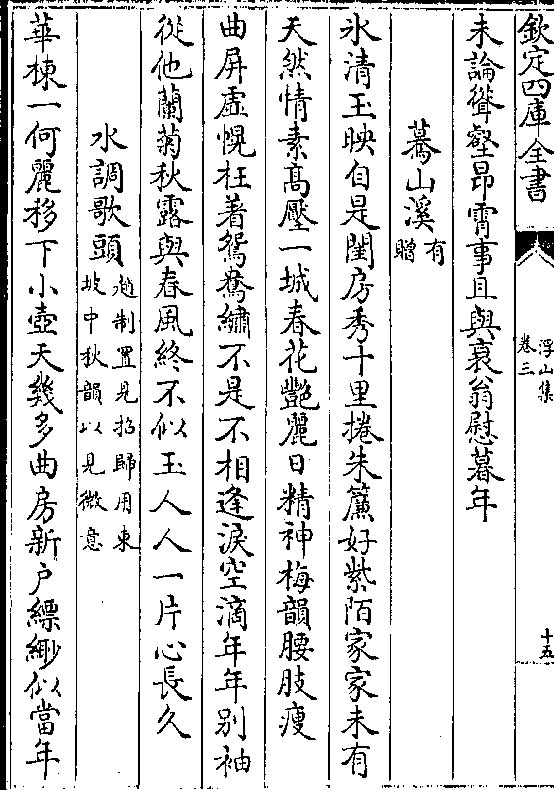 欽定四庫全書
浮山集
卷三
十五
未論聳壑昂霄事且與衰翁慰暮年
驀山溪有
贈
氷清玉映自是閨房秀十里捲朱簾好紫陌家家未有
天然情素髙壓一城春花艷麗日精神梅韻腰肢瘦
曲屏虚幌枉着鴛鴦繡不是不相逢淚空滴年年别袖
從他蘭菊秋露與春風終不似玉人人一片心長久
水調歌頭趙制置見招歸用東
坡中秋韻以見微意
華棟一何麗移下小壺天幾多曲房新户縹緲似當年